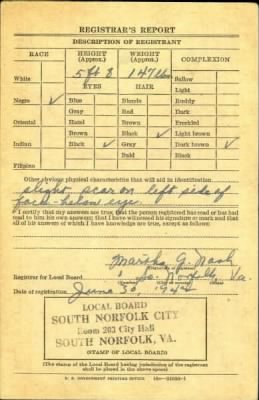 REGISTRAR'S REPORT
DESCRIPTION OF REGISTRANT
RACE HEIGHT (Approx.) WEIGHT (Approx.) COMPLEXION
White 5 ft 8 147 lbs Sallow
EYES HAIR Light
Negro ✓ Blue Blonde Ruddy
Gray Red Dark
Oriental Hazel Brown Freckled
Brown Black ✓ Light brown
Indian Black ✓ Gray Dark brown ✓
Bald Black
Filipino
Other obvious physical characteristics that will aid in identification
slight scar on left side of
face - below eye
I certify that my answers are true; that the person registered has read or has had
read to him his own answers; that I have witnessed his signature or mark and that all
of his answers of which I have knowledge are true, except as follows:
Martha G. Nash
Registrar for Local Board So. Norfolk Va.
Date of registration June 30 1942
LOCAL BOARD
SOUTH NORFOLK CITY
Room 203 City Hall
SOUTH NORFOLK, VA.
(STAMP OF LOCAL BOARD)
(The stamp of the Local Board having jurisdiction of the registrant
shall be placed in the above space)
U. S. GOVERNMENT PRINTING OFFICE